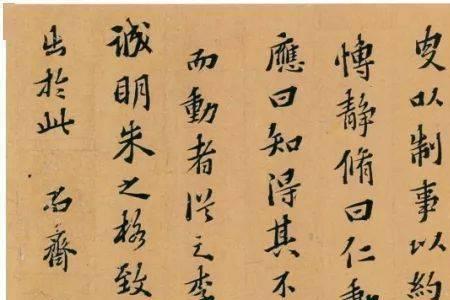 叟以制事以約
慱静脩曰仁動
應曰知得其不
而動者從之李
誠明朱之格致
出於此 尚齋